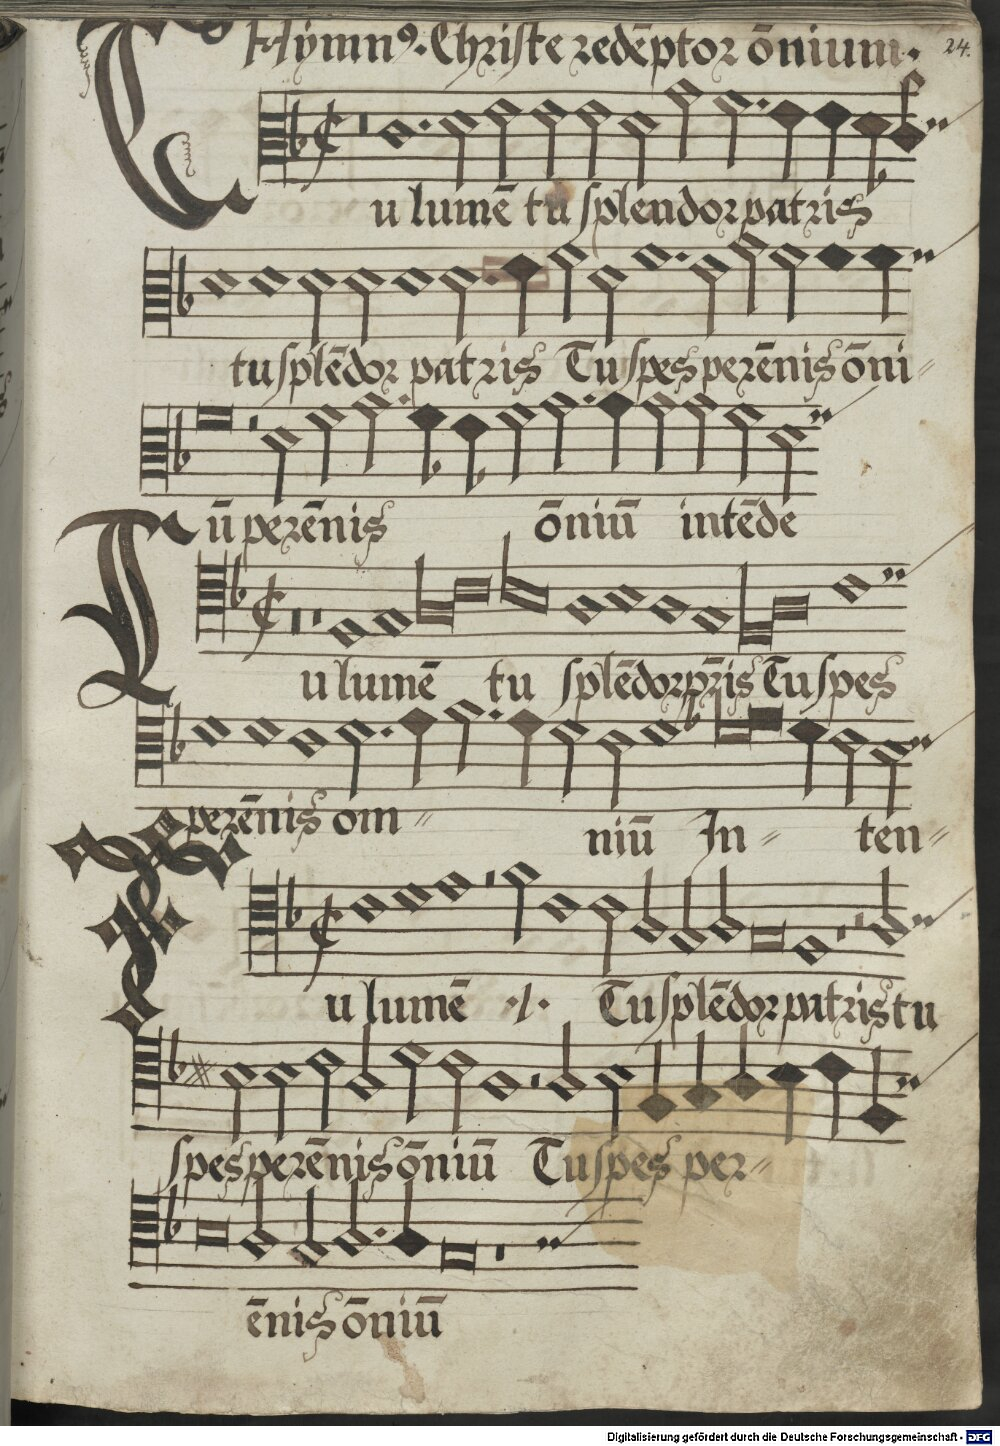 Hymnꝰ. Christe redēptor ōnium.
24.
Tu lumē tu splendor patris
tu splēdor patris Tu spes perēnis ōni=
ū perēnis ōniū intēde
Tu lumē tu splēdor pr̄is Tu spes
perēnis om= niū In= ten=
Tu lumē ·/· Tu splēdor patris tu
spes perēnis ōniū Tu spes per=
ēnis ōniū
Digitalisierung gefördert durch die Deutsche Forschungsgemeinschaft - DFG